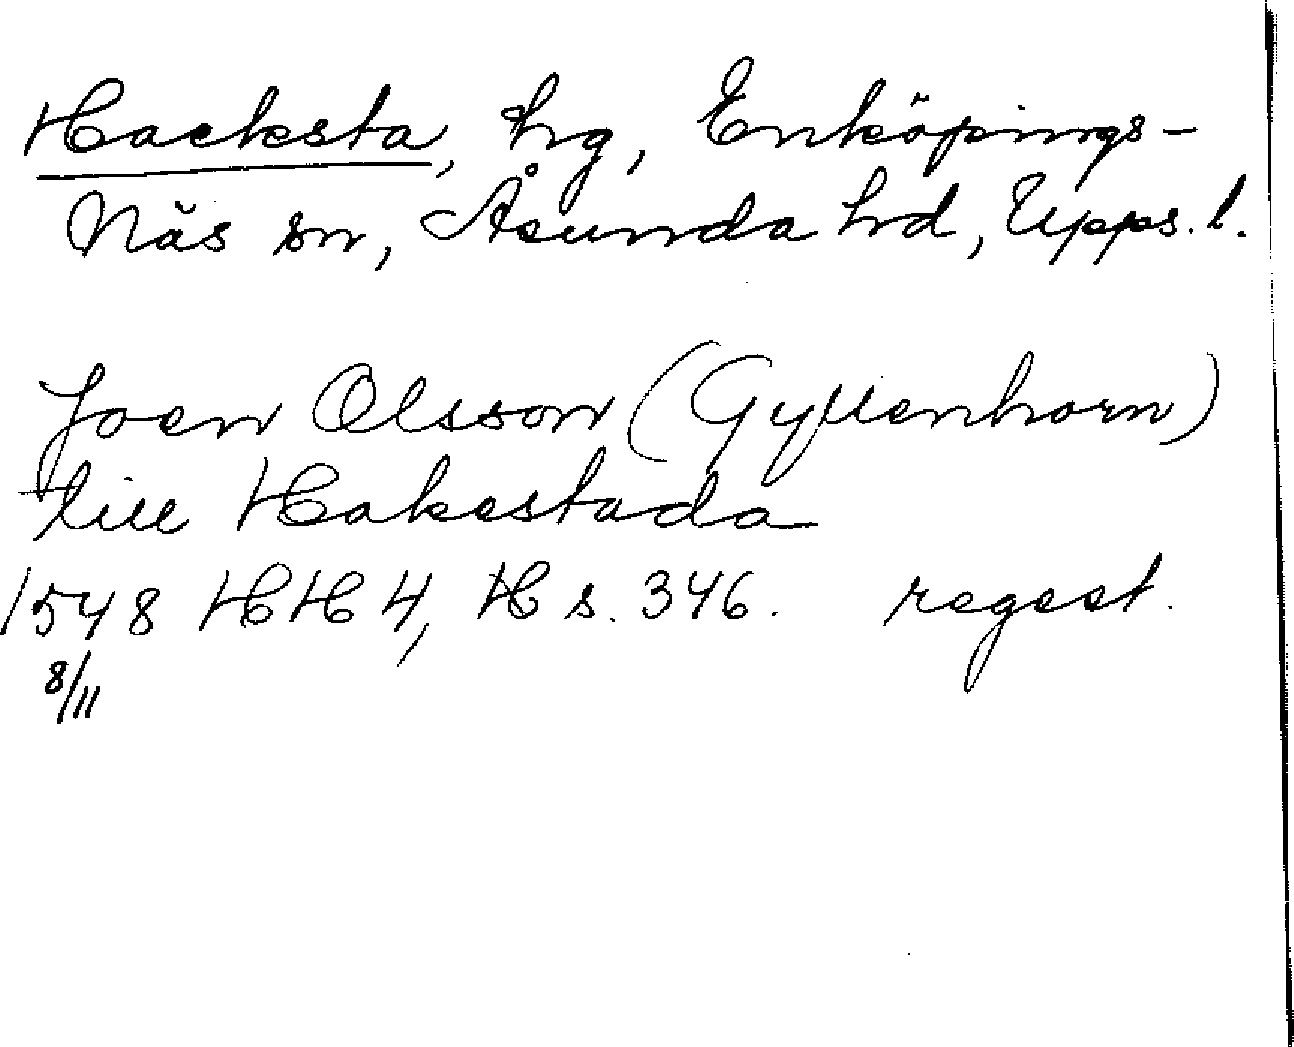 Hacksta, hg, Enköpings-
Näs sn, Åsunda hd, Upps. l.
Joen Olsson (Gyllenhorn)
till Hakestada
1548 HH 4, H s. 346. regest.
8/11